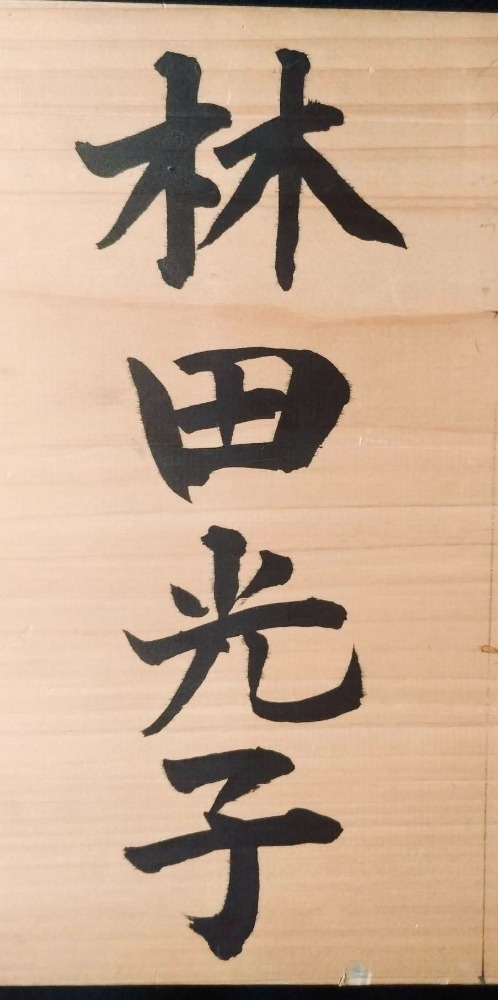 林田光子